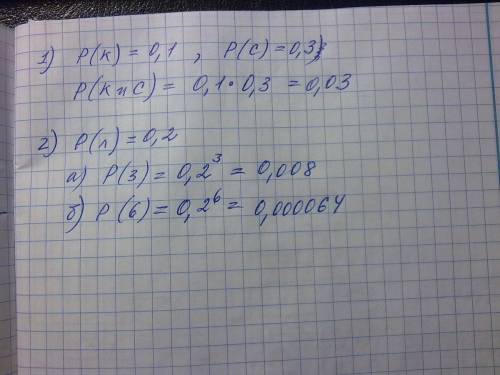 1) P(к) = 0,1 , P(с) = 0,3
P(к и с) = 0,1 · 0,3 = 0,03
2) P(л) = 0,2
а) P(3) = 0,2³ = 0,008
б) P(6) = 0,2⁶ = 0,000064